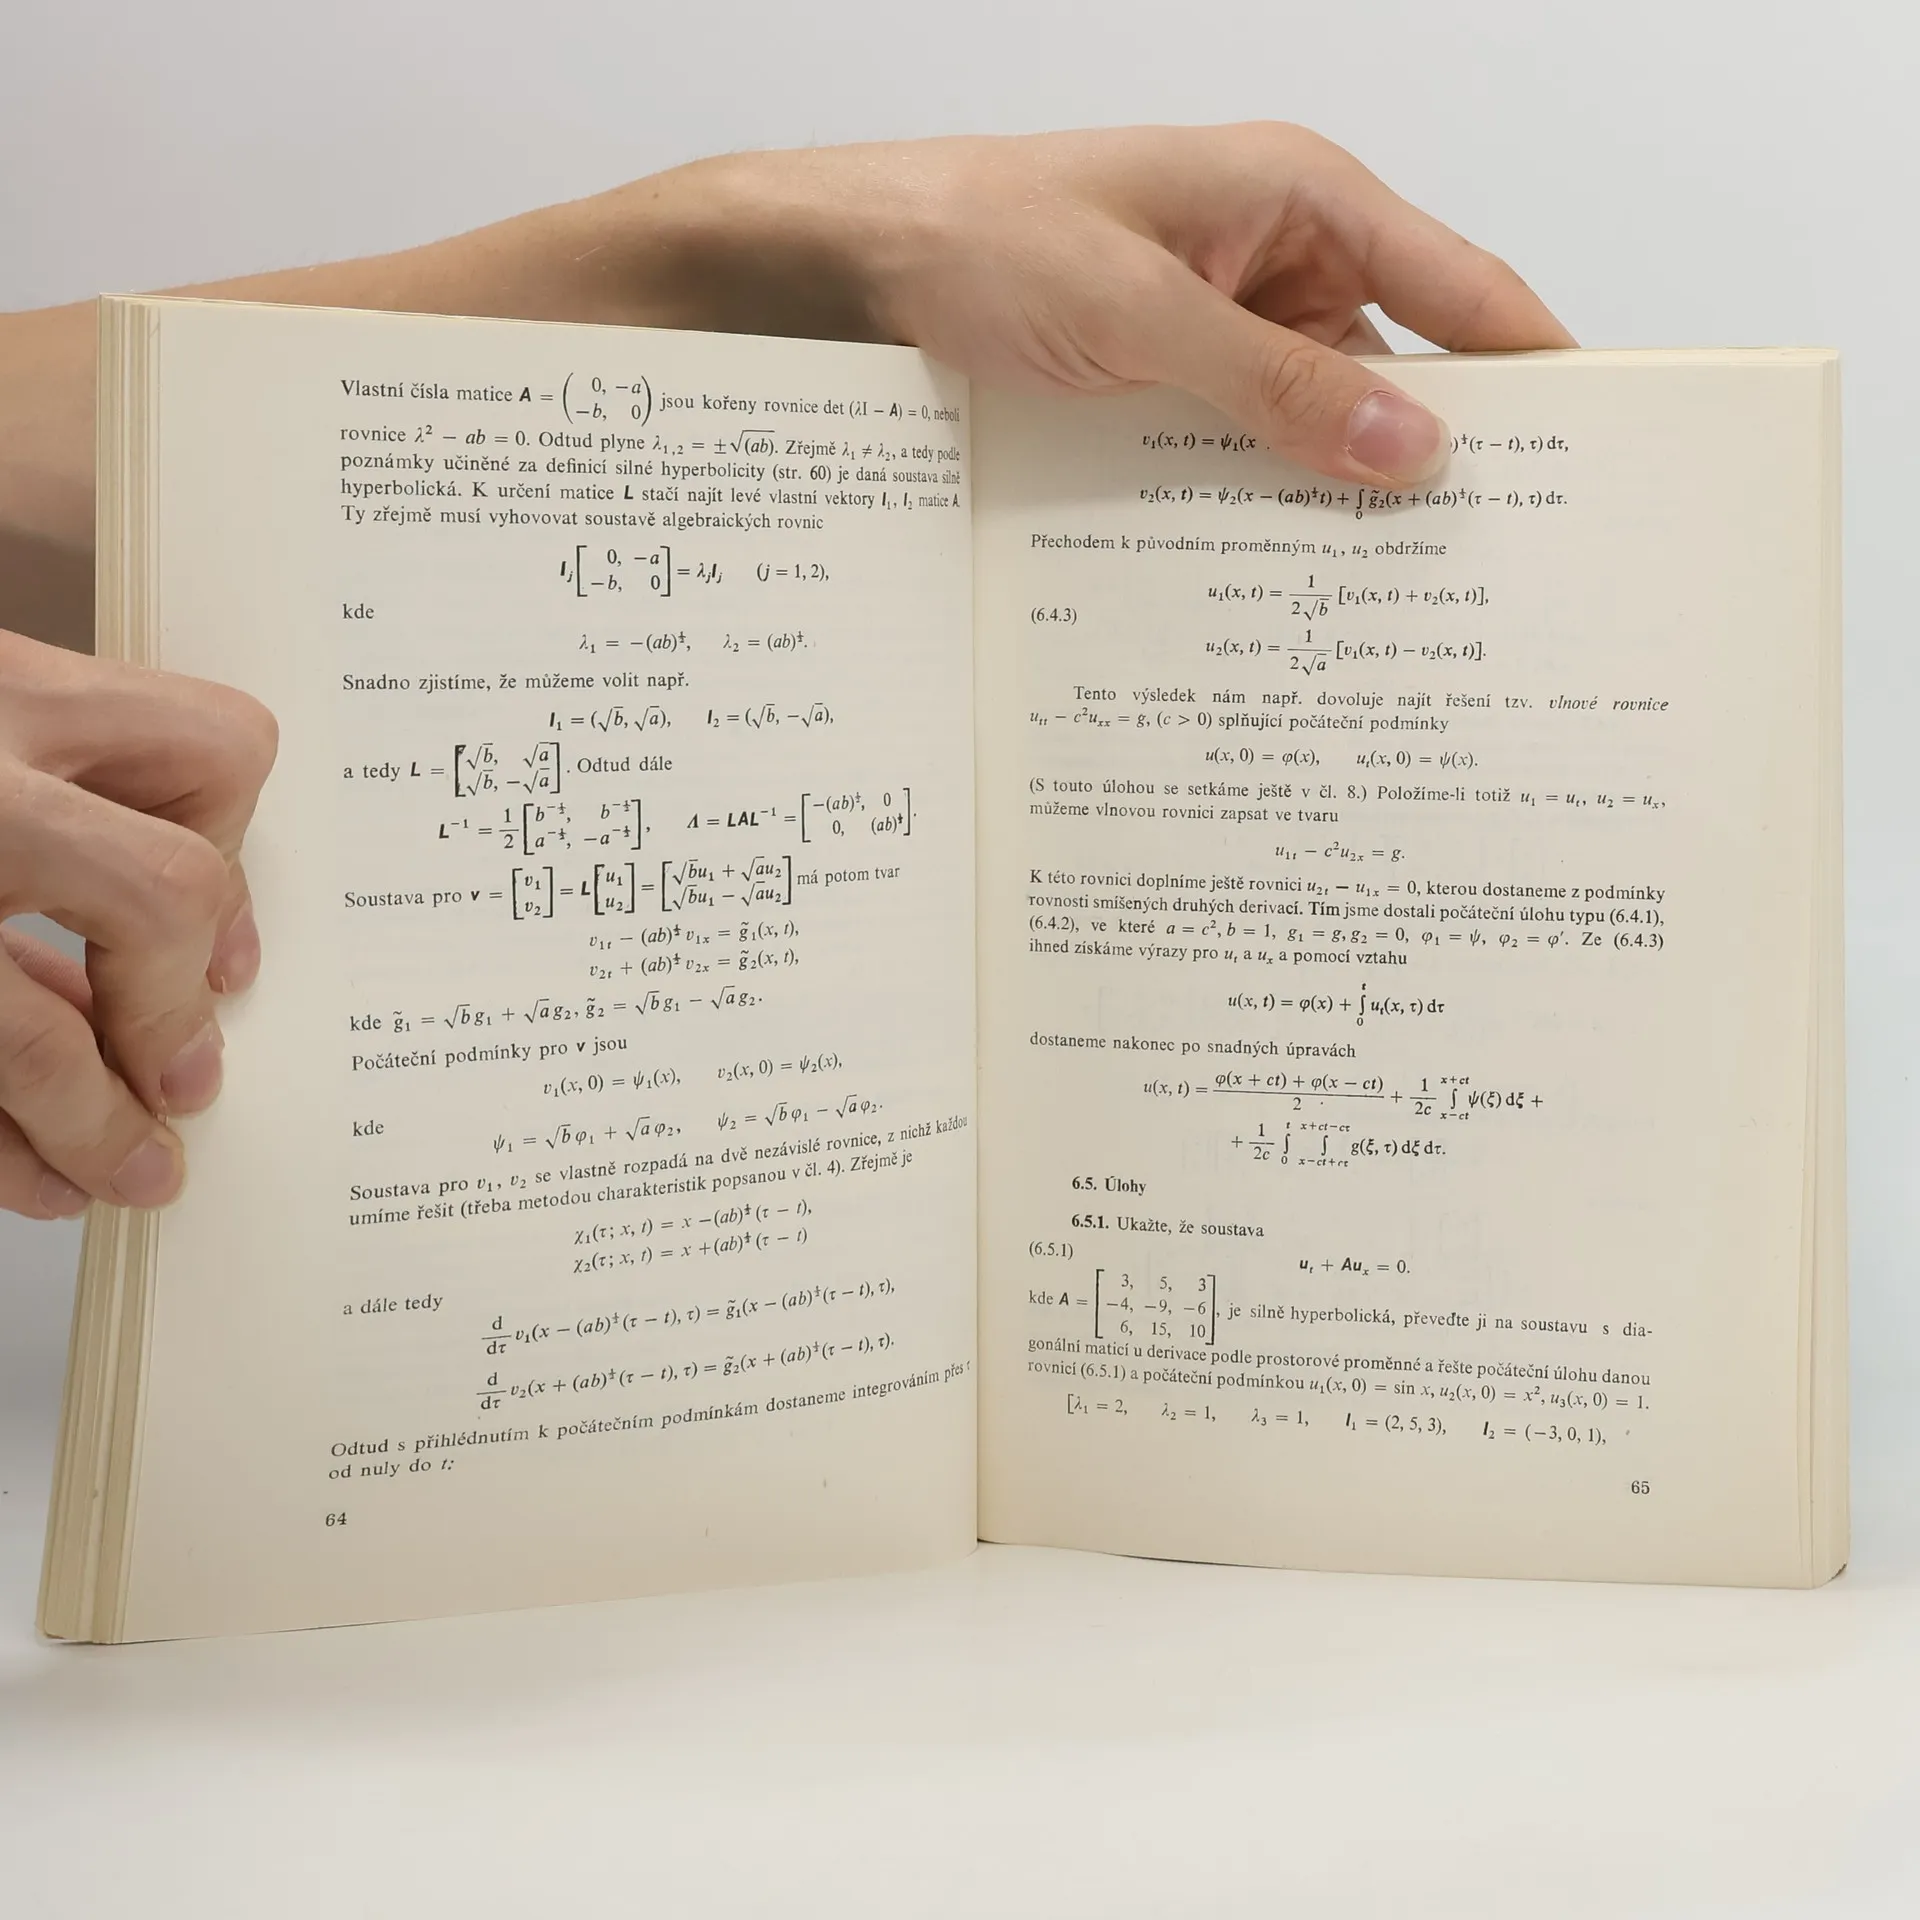 Vlastní čísla matice A = ( 0, −a
−b, 0 ) jsou kořeny rovnice det (λI − A) = 0, neboli
rovnice λ² − ab = 0. Odtud plyne λ₁,₂ = ±√(ab). Zřejmě λ₁ ≠ λ₂, a tedy podle
poznámky učiněné za definicí silné hyperbolicity (str. 60) je daná soustava silně
hyperbolická. K určení matice L stačí najít levé vlastní vektory l₁, l₂ matice A.
Ty zřejmě musí vyhovovat soustavě algebraických rovnic
lⱼ [ 0, −a
−b, 0 ] = λⱼlⱼ (j = 1, 2),
kde
λ₁ = −(ab)^½, λ₂ = (ab)^½.
Snadno zjistíme, že můžeme volit např.
l₁ = (√b, √a), l₂ = (√b, −√a),
a tedy L = [ √b, √a
√b, −√a ]. Odtud dále
L⁻¹ = 1/2 [ b^−½, b^−½
a^−½, −a^−½ ], Λ = LAL⁻¹ = [ −(ab)^½, 0
0, (ab)^½ ].
Soustava pro v = [ v₁
v₂ ] = L [ u₁
u₂ ] = [ √bu₁ + √au₂
√bu₁ − √au₂ ] má potom tvar
v₁ₜ − (ab)^½ v₁ₓ = g̃₁(x, t),
v₂ₜ + (ab)^½ v₂ₓ = g̃₂(x, t),
kde g̃₁ = √b g₁ + √a g₂, g̃₂ = √b g₁ − √a g₂.
Počáteční podmínky pro v jsou
v₁(x, 0) = ψ₁(x), v₂(x, 0) = ψ₂(x),
kde
ψ₁ = √b φ₁ + √a φ₂, ψ₂ = √b φ₁ − √a φ₂.
Soustava pro v₁, v₂ se vlastně rozpadá na dvě nezávislé rovnice, z nichž každou
umíme řešit (třeba metodou charakteristik popsanou v čl. 4). Zřejmě je
χ₁(τ; x, t) = x −(ab)^½ (τ − t),
χ₂(τ; x, t) = x +(ab)^½ (τ − t)
a dále tedy
d/dτ v₁(x − (ab)^½ (τ − t), τ) = g̃₁(x − (ab)^½ (τ − t), τ),
d/dτ v₂(x + (ab)^½ (τ − t), τ) = g̃₂(x + (ab)^½ (τ − t), τ).
Odtud s přihlédnutím k počátečním podmínkám dostaneme integrováním přes τ
od nuly do t:
64
v₁(x, t) = ψ₁(x )^½(τ − t), τ) dτ,
v₂(x, t) = ψ₂(x − (ab)^½t) + ∫₀ g̃₂(x + (ab)^½(τ − t), τ) dτ.
Přechodem k původním proměnným u₁, u₂ obdržíme
u₁(x, t) = 1/(2√b) [v₁(x, t) + v₂(x, t)],
(6.4.3)
u₂(x, t) = 1/(2√a) [v₁(x, t) − v₂(x, t)].
Tento výsledek nám např. dovoluje najít řešení tzv. vlnové rovnice
uₜₜ − c²uₓₓ = g, (c > 0) splňující počáteční podmínky
u(x, 0) = φ(x), uₜ(x, 0) = ψ(x).
(S touto úlohou se setkáme ještě v čl. 8.) Položíme-li totiž u₁ = uₜ, u₂ = uₓ,
můžeme vlnovou rovnici zapsat ve tvaru
u₁ₜ − c²u₂ₓ = g.
K této rovnici doplníme ještě rovnici u₂ₜ − u₁ₓ = 0, kterou dostaneme z podmínky
rovnosti smíšených druhých derivací. Tím jsme dostali počáteční úlohu typu (6.4.1),
(6.4.2), ve které a = c², b = 1, g₁ = g, g₂ = 0, φ₁ = ψ, φ₂ = φ′. Ze (6.4.3)
ihned získáme výrazy pro uₜ a uₓ a pomocí vztahu
u(x, t) = φ(x) + ∫₀ᵗ uₜ(x, τ) dτ
dostaneme nakonec po snadných úpravách
u(x, t) = (φ(x + ct) + φ(x − ct))/2 + 1/2c ∫_{x−ct}^{x+ct} ψ(ξ) dξ +
+ 1/2c ∫₀ᵗ ∫_{x−ct+cτ}^{x+ct−cτ} g(ξ, τ) dξ dτ.
6.5. Úlohy
6.5.1. Ukažte, že soustava
(6.5.1)
uₜ + Auₓ = 0.
kde A = [ 3, 5, 3
−4, −9, −6
6, 15, 10 ], je silně hyperbolická, převeďte ji na soustavu s dia-
gonální maticí u derivace podle prostorové proměnné a řešte počáteční úlohu danou
rovnicí (6.5.1) a počáteční podmínkou u₁(x, 0) = sin x, u₂(x, 0) = x², u₃(x, 0) = 1.
[λ₁ = 2, λ₂ = 1, λ₃ = 1, l₁ = (2, 5, 3), l₂ = (−3, 0, 1),
65